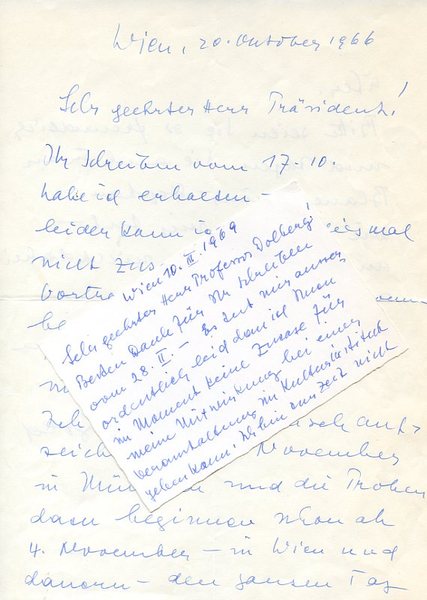 Wien, 20. Oktober 1966
Sehr geehrter Herr Präsident!
Ihr Schreiben vom 17.10.
habe ich erhalten –
leider kann ich
mal
nicht zus
Vortra
be
in
Ich
aufz
seich
November
in Mün und die Proben
dazu beginnen schon ab
4. November – in Wien und
danorn – den ganzen Tag
Wien 10. III. 1969
Sehr geehrter Herr Professor Dolberg!
Besten Dank für Ihr Schreiben
vom 28. II. – Es tut mir ausser-
ordentlich leid dass ich Ihnen
im Moment keine Zusage für
meine Mitwirkung bei einer
Veranstaltung im Kulturinstitut
geben kann. Ich bin zur Zeit nicht